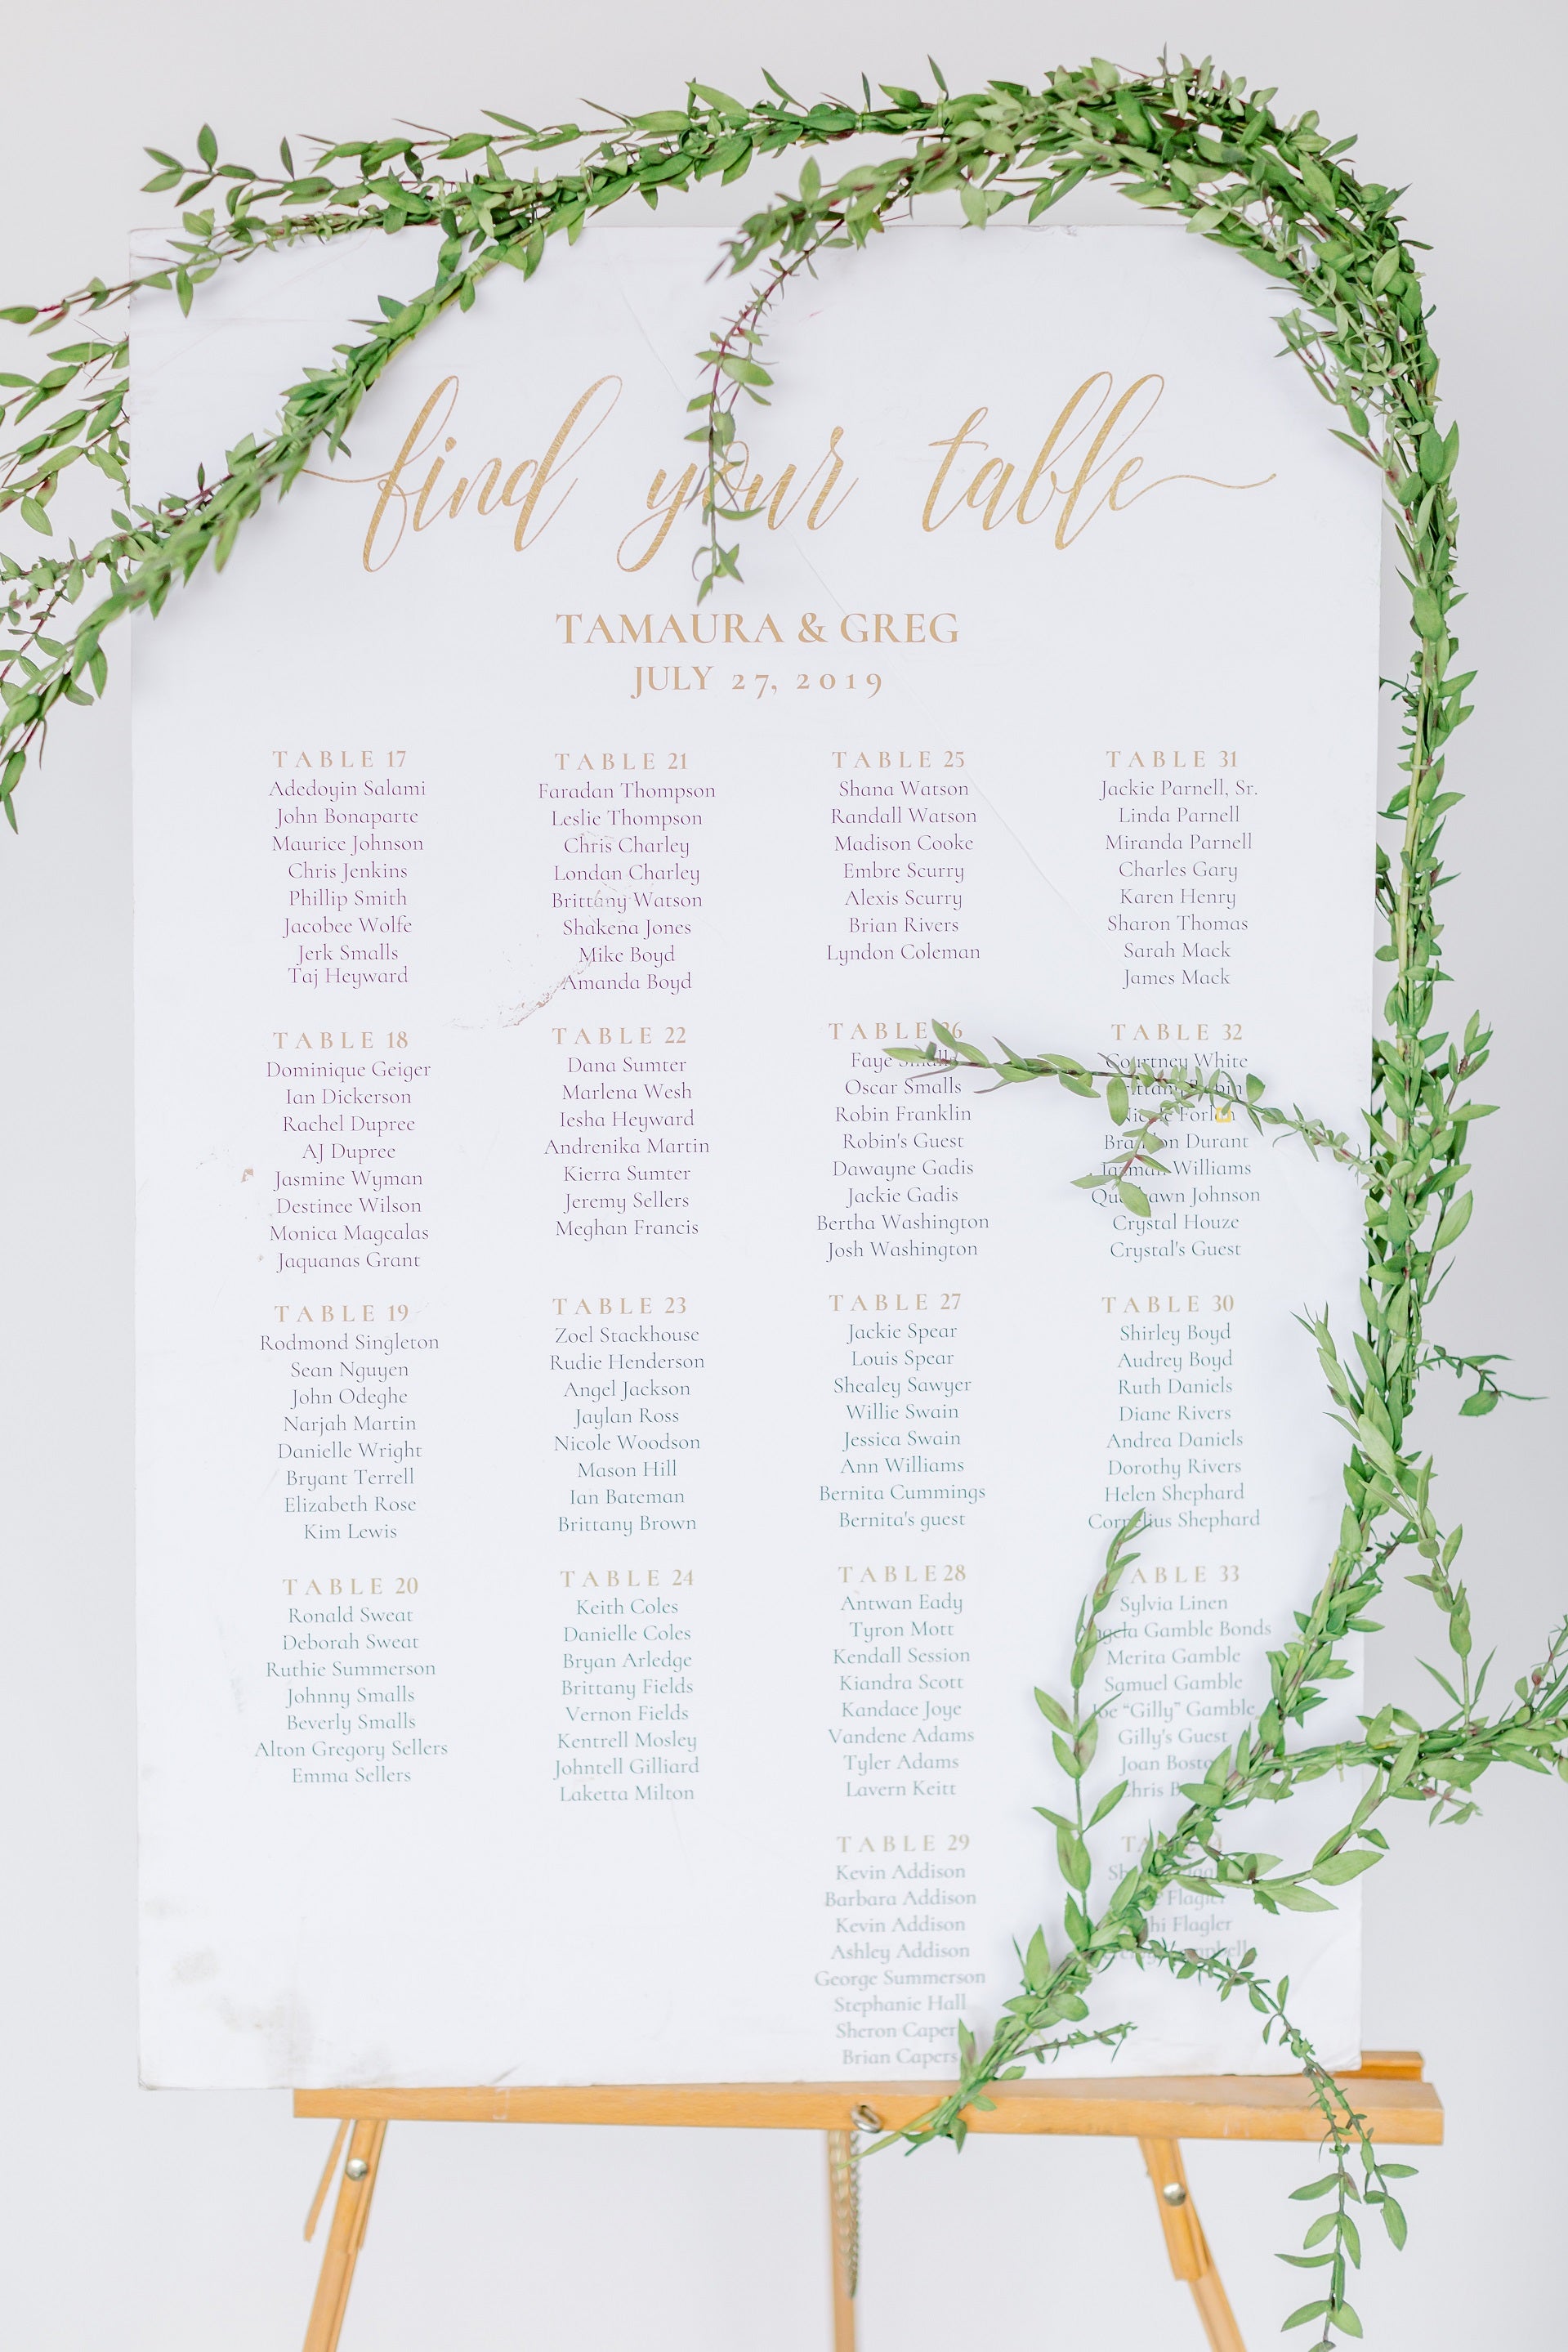 find your table
TAMAURA & GREG
JULY 27, 2019
TABLE 17
Adedoyin Salami
John Bonaparte
Maurice Johnson
Chris Jenkins
Phillip Smith
Jacobee Wolfe
Jerk Smalls
Taj Heyward
TABLE 18
Dominique Geiger
Ian Dickerson
Rachel Dupree
AJ Dupree
Jasmine Wyman
Destinee Wilson
Monica Magcalas
Jaquanas Grant
TABLE 19
Rodmond Singleton
Sean Nguyen
John Odeghe
Narjah Martin
Danielle Wright
Bryant Terrell
Elizabeth Rose
Kim Lewis
TABLE 20
Ronald Sweat
Deborah Sweat
Ruthie Summerson
Johnny Smalls
Beverly Smalls
Alton Gregory Sellers
Emma Sellers
TABLE 21
Faradan Thompson
Leslie Thompson
Chris Charley
Londan Charley
Brittany Watson
Shakena Jones
Mike Boyd
Amanda Boyd
TABLE 22
Dana Sumter
Marlena Wesh
Iesha Heyward
Andrenika Martin
Kierra Sumter
Jeremy Sellers
Meghan Francis
TABLE 23
Zoel Stackhouse
Rudie Henderson
Angel Jackson
Jaylan Ross
Nicole Woodson
Mason Hill
Ian Bateman
Brittany Brown
TABLE 24
Keith Coles
Danielle Coles
Bryan Arledge
Brittany Fields
Vernon Fields
Kentrell Mosley
Johntell Gilliard
Laketta Milton
TABLE 25
Shana Watson
Randall Watson
Madison Cooke
Embre Scurry
Alexis Scurry
Brian Rivers
Lyndon Coleman
TABLE 26
Faye Smalls
Oscar Smalls
Robin Franklin
Robin's Guest
Dawayne Gadis
Jackie Gadis
Bertha Washington
Josh Washington
TABLE 27
Jackie Spear
Louis Spear
Shealey Sawyer
Willie Swain
Jessica Swain
Ann Williams
Bernita Cummings
Bernita's guest
TABLE 28
Antwan Eady
Tyron Mott
Kendall Session
Kiandra Scott
Kandace Joye
Vandene Adams
Tyler Adams
Lavern Keitt
TABLE 29
Kevin Addison
Barbara Addison
Kevin Addison
Ashley Addison
George Summerson
Stephanie Hall
Sheron Capers
Brian Capers
TABLE 31
Jackie Parnell, Sr.
Linda Parnell
Miranda Parnell
Charles Gary
Karen Henry
Sharon Thomas
Sarah Mack
James Mack
TABLE 32
Courtney White
Brittany
Nicole
Brandon Durant
Williams
Johnson
Crystal Houze
Crystal's Guest
TABLE 30
Shirley Boyd
Audrey Boyd
Ruth Daniels
Diane Rivers
Andrea Daniels
Dorothy Rivers
Helen Shephard
Cornelius Shephard
TABLE 33
Sylvia Linen
Angela Gamble Bonds
Merita Gamble
Samuel Gamble
Joe “Gilly” Gamble
Gilly's Guest
Joan
Chris
Flagler
Flagler